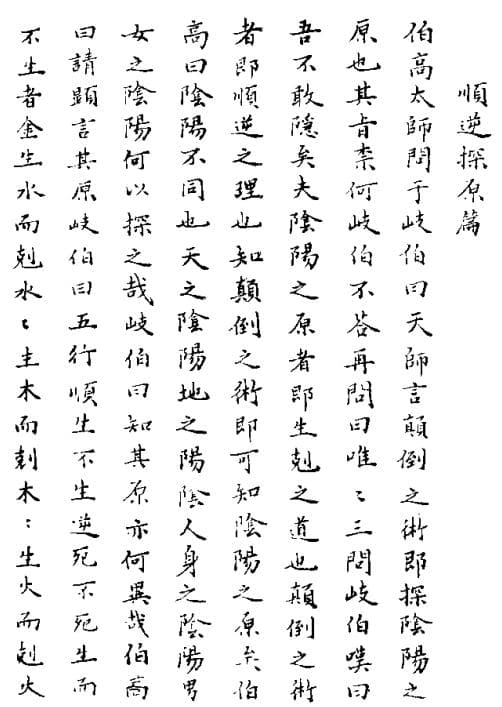 順逆探原篇
伯高太師問于岐伯曰天師言顛倒之術即探陰陽之
原也其旨柰何岐伯不荅再問曰唯〻三問岐伯嘆曰
吾不敢隱矣夫陰陽之原者即生剋之道也顛倒之術
者即順逆之理也知顛倒之術即可知陰陽之原矣伯
高曰陰陽不同也天之陰陽地之陽陰人身之陰陽男
女之陰陽何以探之哉岐伯曰知其原亦何異哉伯高
曰請顕言其原岐伯曰五行順生不生逆死不死生而
不生者金生水而剋水〻主木而剋木〻生火而剋火